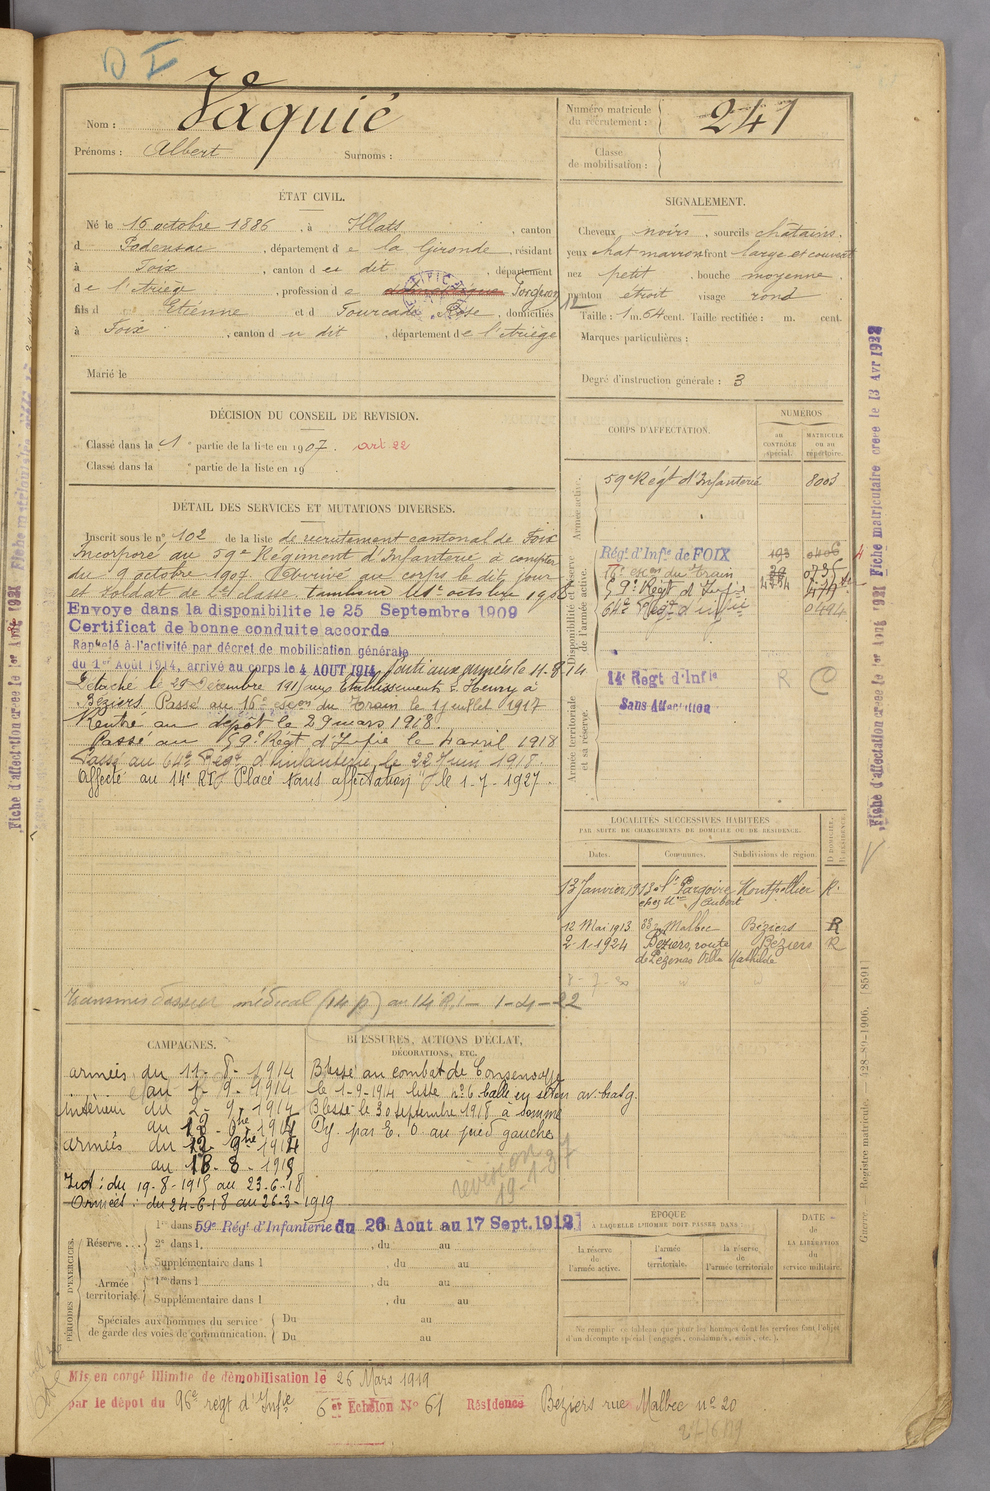 D I
Nom : Vaquié
Prénoms : Albert Surnoms :
Numéro matricule du recrutement : 247
Classe de mobilisation :
ÉTAT CIVIL.
Né le 16 octobre 1886, à Illats, canton
d Podensac, département de la Gironde, résidant
à Foix, canton d et dit, département
de l'Ariège, profession de domestique Forgeron
fils d Etienne et d Fourcade Rose, domiciliés
à Foix, canton d u dit, département de l'Ariège
Marié le
SIGNALEMENT.
Cheveux noirs, sourcils chatains.
yeux chat marron front large et couvert
nez petit, bouche moyenne.
menton étroit visage rond
Taille : 1 m. 64 cent. Taille rectifiée : m. cent.
Marques particulières :
Degré d'instruction générale : 3
DÉCISION DU CONSEIL DE REVISION.
Classé dans la 1e partie de la liste en 1907. art 22
Classé dans la e partie de la liste en 19 .
DÉTAIL DES SERVICES ET MUTATIONS DIVERSES.
Inscrit sous le n° 102 de la liste de recrutement cantonal de Foix
Incorporé au 59e Régiment d'Infanterie à compter
du 9 octobre 1907. Arrivé au corps le dit jour
et soldat de 2e classe. Tambour le 1er octobre 1908
Envoye dans la disponibilite le 25 Septembre 1909
Certificat de bonne conduite accorde
Rappelé à l'activité par décret de mobilisation générale
du 1er Août 1914, arrivé au corps le 4 AOUT 1914, Parti aux armées le 11-8-14
Détaché le 29 Décembre 1915 aux Etablissements Henry à
Béziers. Passé au 16e escon du Train le 1 juillet 1917
Rentré au dépôt le 29 mars 1918.
Passé au 59e Régt d'Infie le 4 avril 1918
Passé au 64e Régt d'Infanterie, le 22 Juin 1918.
Affecté au 14e RI Placé sans affectation le 1-7-1927.
Transmis dossier médical (14 p) au 14 R.I - 1-4-22
CORPS D'AFFECTATION.
NUMÉROS
au CONTRÔLE spécial.
MATRICULE ou au répertoire.
Armée active.
59e Régt d'Infanterie 8003
Disponibilité et réserve de l'armée active.
Régt d'Infie de FOIX 193 0406
16e escon du Train
59e Régt d'Infie
64e Régt d'Infie 0494
Armée territoriale et sa réserve.
14e Régt d'Infie R
Sans Affectation
LOCALITÉS SUCCESSIVES HABITÉES
PAR SUITE DE CHANGEMENTS DE DOMICILE OU DE RÉSIDENCE.
Dates. Communes. Subdivisions de région. D DOMICILE. R RÉSIDENCE.
13 Janvier 1913 St Pargoire Montpellier R.
chez Mr Jaubert
12 Mai 1913 Malbec Béziers R
2-1-1924 Béziers, route Béziers R
de Pézenas Villa Mathilde
CAMPAGNES.
armées du 11-8-1914
au 1-9-1914
Intérieur du 2-9-1914
au
armées du
au 18-8-1915
Int : du 19-8-1915 au 23-6-18
Armées : du 24-6-18 au 26-3-1919
BLESSURES, ACTIONS D'ÉCLAT, DÉCORATIONS, ETC.
Blessé au combat de Consenvoye
le 1-9-1914 liste n°6 balle en séton av. bras g.
Blessé le 30 septembre 1918 à Somme
Py. par E. O. au pied gauche
révision
19-1-37
PÉRIODES D'EXERCICES.
Réserve ...
1re dans l 59e Régt d'Infanterie du 26 Aout au 17 Sept. 1912
2e dans l , du au
Supplémentaire dans l , du au
Armée territoriale
1re dans l , du au
Supplémentaire dans l , du au
Spéciales aux hommes du service de garde des voies de communication. Du au
Du au
ÉPOQUE
À LAQUELLE L'HOMME DOIT PASSER DANS :
la réserve de l'armée active.
l'armée territoriale.
la réserve de l'armée territoriale
DATE de LA LIBÉRATION du service militaire.
Ne remplir ce tableau que pour les hommes dont les services font l'objet d'un décompte spécial (engagés, condamnés, omis, etc.).
Mis en congé illimité de démobilisation le 26 Mars 1919
par le dépôt du 96e régt d'Infie 6e Echelon N° 61 Résidence Béziers rue Malbec n° 20
Fiche matriculaire creee le 13 Avr 1932
Fiche d'affectation creee le 1er Aout 1931
Guerre. Registre matricule. 428-89-1906. [8591]